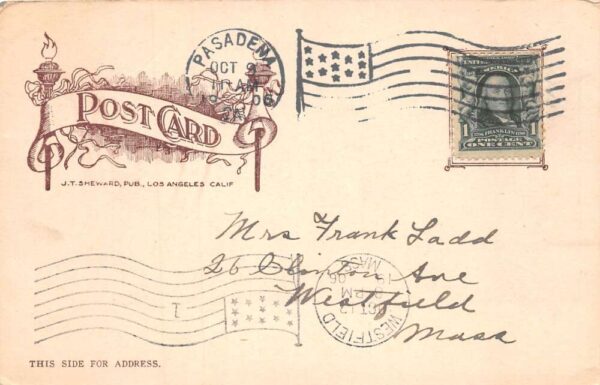 PASADENA
OCT 9
11 AM
1906
CAL.
SERIES 1902
1 FRANKLIN 1
POSTAGE
ONE CENT
POST CARD
J.T. SHEWARD, PUB., LOS ANGELES CALIF
Mrs Frank Ladd
26 Clinton Ave
Westfield
Mass
WESTFIELD
MASS
OCT 13
PM
06
1
THIS SIDE FOR ADDRESS.